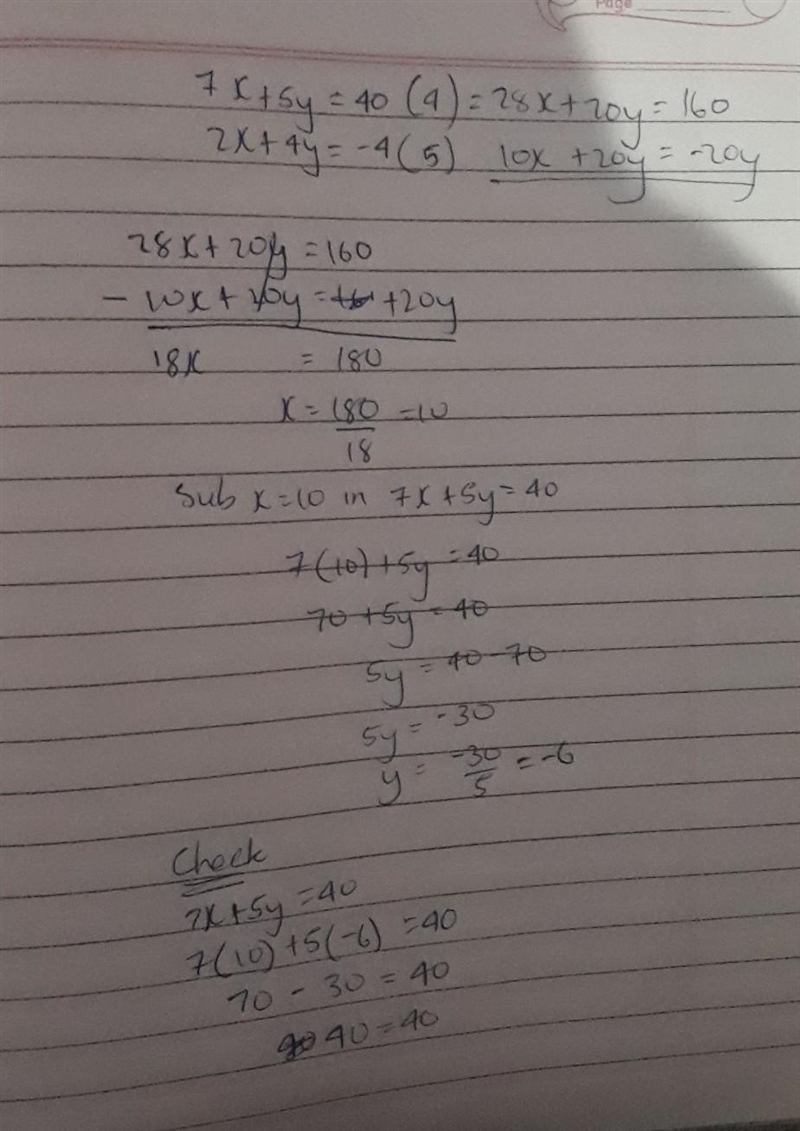 Page
7x+5y=40 (4)=28x+20y=160
2x+4y=-4(5) 10x+20y=-20y
28x+20y=160
- 10x+20y= +20y
18x = 180
x=180/18=10
Sub x=10 in 7x+5y=40
7(10)+5y=40
70+5y=40
5y=40-70
5y=-30
y=-30/5=-6
Check
7x+5y=40
7(10)+5(-6)=40
70-30=40
40=40